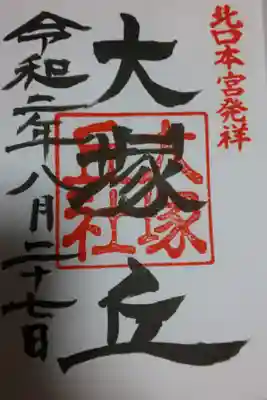 北口本宮発祥
大塚丘
大塚丘社
令和二年八月二十七日